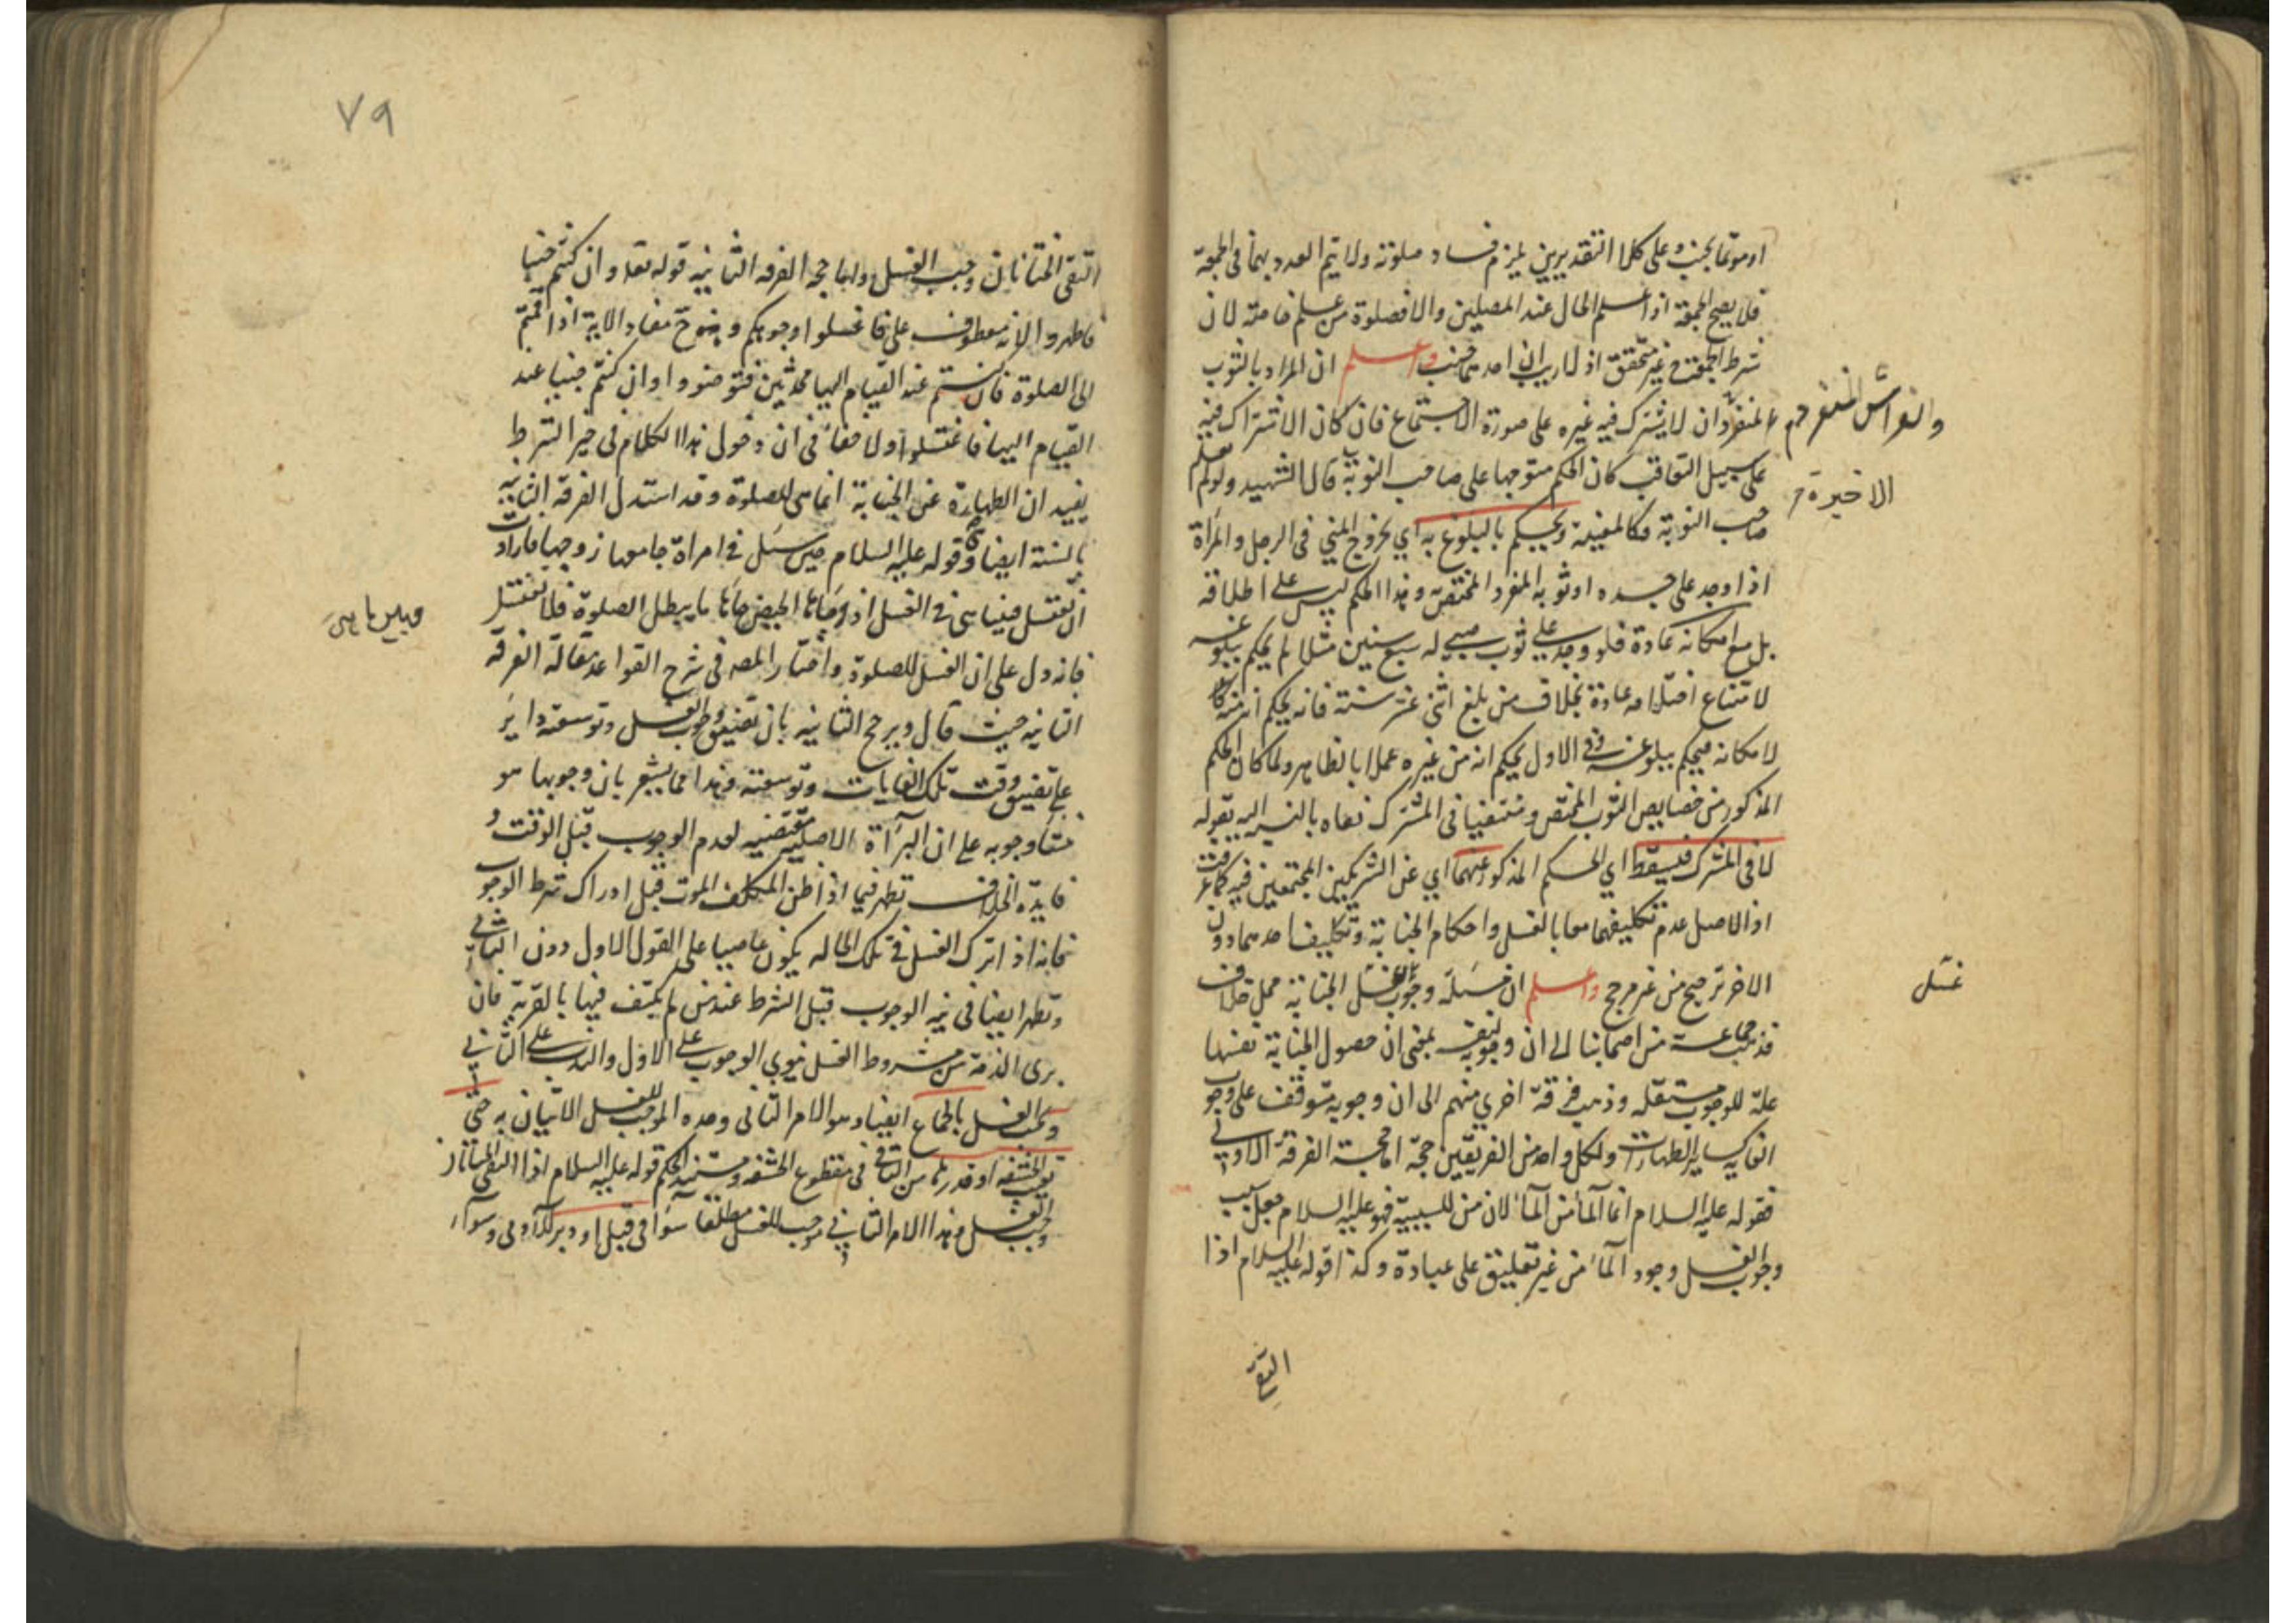 او مؤتما بجنب وعلى كلا التقديرين يلزم فساد صلوته ولا يتم العدد بهما فى الجمعة
فلا يصح الجمعة اذا علم الحال عند المصلين والا فصلوة من علم خاصة لان
شرط الجمعة غير متحقق اذ لا ريب ان احدهما جنب واعلم ان المراد بالثوب
والفراش المنفردين
المنفرد ان لا يشترك فيه غيره على صورة الاجتماع فان كان الاشتراك فيه
على سبيل التعاقب كان الحكم متوجها على صاحب النوبة قال الشهيد ولو لم يعلم
الاخيرة
صاحب النوبة فكالمعية ويحكم بالبلوغ به اي بخروج المني فى الرجل والمرأة
اذا وجد على جسده او ثوبه المنفرد المختص وهذا الحكم ليس على اطلاقه
بل مع امكانه عادة فلو وجد على ثوب صبي له سبع سنين مثلا لم يحكم ببلوغه
لامتناع احتلامه عادة بخلاف من بلغ اثنى عشر سنة فانه يحكم انه منه
لامكانه فيحكم ببلوغه وفى الاول يحكم انه من غيره عملا بالظاهر ولما كان الحكم
المذكور من خصايص الثوب المختص ومنتفيا فى المشترك نفاه بالنسبة اليه بقوله
لا فى المشترك فيسقط اي الحكم المذكور عنهما اي عن الشريكين المجتمعين فيه كما عرفت
اذ الاصل عدم تكليفهما معا بالغسل واحكام الجنابة وتكليف احدهما دون
الاخر ترجيح من غير مرجح واعلم ان مسئلة وجوب غسل الجنابة محل خلاف
غسل
فذهب جماعة من اصحابنا الى ان وجوبه لنفسه بمعنى ان حصول الجنابة نفسها
علة للوجوب مستقلة وذهب فرقة اخرى منهم الى ان وجوبه متوقف على وجوب
الغاية كساير الطهارات ولكل واحد من الفريقين حجة اما حجة الفرقة الاولى
فقوله عليه السلام انما المآء من المآء لان من للسببية فهو عليه السلام جعل سبب
وجوب الغسل وجود المآء من غير تعليق على عبادة وكذا قوله عليه السلام اذا
التقى
٧٩
التقى الختانان وجب الغسل واما حجة الفرقة الثانية قوله تعالى وان كنتم جنبا
فاطهروا لانه معطوف على فاغسلوا وجوهكم وح مفاد الاية اذا قمتم
الى الصلوة فان كنتم عند القيام اليها محدثين فتوضئوا وان كنتم جنبا عند
القيام اليها فاغتسلوا ولا خفاء فى ان دخول هذا الكلام فى حيز الشرط
يفيد ان الطهارة عن الجنابة انما هى للصلوة وقد استدل الفرقة الثانية
بالسنة ايضا وهى قوله عليه السلام حين سئل فى امراة جامعها زوجها فارادت
ان تغتسل فبينا هى فى الغسل اذ جائها الحيض جائها ما يبطل الصلوة فلا تغتسل
فانه دل على ان الغسل للصلوة واختار المصه فى شرح القواعد مقالة الفرقة
الثانية حيث قال ويرجح الثانية بان تضيق وجوب الغسل وتوسعته داير
على تضيق وقت تلك الغايات وتوسعته وهذا مما يشعر بان وجوبها هو
منشأ وجوبه على ان البرآءة الاصلية مقتضية لعدم الوجوب قبل الوقت و
فايدة الخلاف تظهر فيما اذا ظن المكلف الموت قبل ادراك شرط الوجوب
فانه اذا ترك الغسل فى تلك الحالة يكون عاصيا على القول الاول دون الثانى
وتظهر ايضا فى نية الوجوب قبل الشرط عند من لم يكتف فيها بالقربة فان
برى الذمة من مشروط الغسل ينوي الوجوب على الاول والندب على الثاني
ويجب الغسل بالجماع ايضا وهو الامر الثانى وحده الموجب للغسل الاتيان به حتى
تغيب الحشفة او قدرها من الباقى فى مقطوع الحشفة ومستند الحكم قوله عليه السلام اذا التقى الختانان
وجب الغسل وهذا الامر الثاني موجب للغسل مطلقا سوآء فى قبل او دبر للآدمى وسوآء